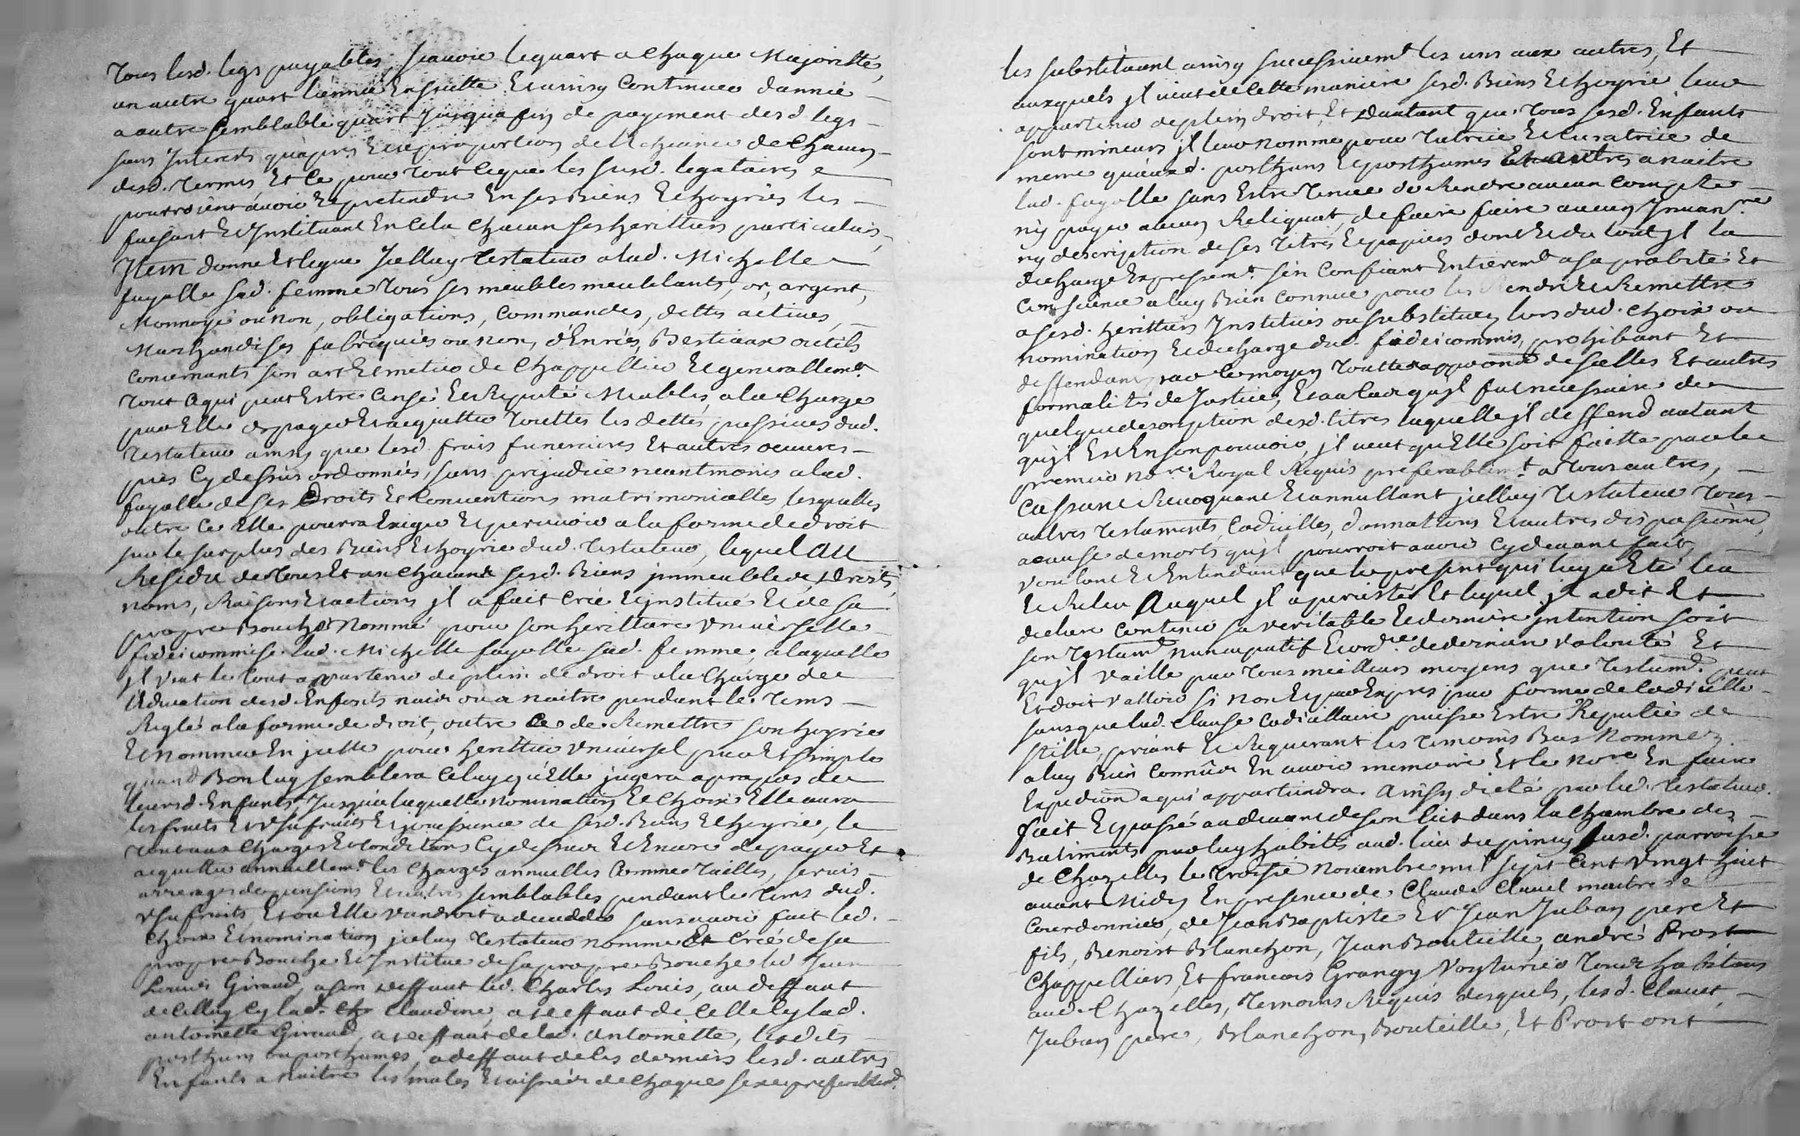 Tous lesd. legs payables scavoir le quart a chaque Majorittés,
un autre quart l'année Ensuitte Et ainsy Continuer d'année
a autre semblable quart jusqu'a fin de payement desd legs
sans Interests qu'apres Et a proportion de l'Echeance de Chacun
desd. Termes, Et Ce pour Tout Ce que les susd. legataires
pourroient avoir Et pretendre En ses Biens Et hoyries les
faisant Et Instituant En Cela Chacun ses heritiers particuliers,
Item donne Et legue Jcelluy Testateur a lad. Michelle
fayolle sad. femme Tous ses meubles meublants, or, argent,
Monnoyé ou non, obligations, Commandes, dettes actives,
Marchandises fabriquées ou non, dénrées, Bestiaux outils
Concernants son art Et metier de Chappellier Et generallemt.
Tout Ce qui peut Estre Censé Et Reputé Meubles, a la Charge
par Elle de payer Et acquitter Touttes les dettes passives dud.
Testateur ainsy que lesd. frais funeraires Et autres oeuvres
pies Cy dessus ordonnées, sans prejudice neantmoins a lad.
fayolle de ses Droits Et Conventions matrimonialles, lesquelles
outre Ce Elle pourra Exiger Et percevoir a la forme de droit
sur le surplus des Biens Et hoyrie dud. Testateur, lequel au
Residu de Tous Et un Chacuns sesd. Biens jmmeubles, Droits,
noms, Raisons Et actions jl a fait Créé Et institué Et de sa
propre Bouche Nommé pour son heritiere Universelle
fideicommise lad. Michelle fayolle sad. femme, a laquelle
jl veut le tout appartenir de plein de droit a la Charge de
l'Education desd. Enfants nais ou a naitre pendant le Tems
Reglé a la forme de droit, outre Ce de Remettre son hoyrie
Et Nommer En jcelle pour heritier Universel pur Et simple
quand Bon luy semblera Celuy qu'Elle jugera a propos de
leursd. Enfants, Jusqu'a laquelle nomination Et Choix Elle aura
les fruits Et Usufruits Et jouissance de sesd. Biens Et hoyrie, le
tout aux Charges Et Conditions Cy dessus Et Encore de payer Et
acquitter annuellemt. les Charges annuelles Comme Tailles, servis
arrerages de pensions Et autres semblables pendant le Tems dud.
Usufruits Et ou Elle viendroit a deceder sans avoir fait led.
Choix Et nomination jceluy Testateur nomme Et Créé de sa
propre Bouche Et Institue de sa propre Bouche led Jean
Louis Giraud, a son deffaut led. Charles Louis, au deffaut
de Celluy Cy lad. Claudine, a deffaut de Celle Cy lad.
antoinette Giraud, a deffaut de lad. Antoinette, lesdits
posthum ou posthumes, a deffaut de les derniers lesd. autres
Enfants a Naitre les males Et aisnés de Chaques sexe preferablemt.
les substituant ainsy successivemt. les uns aux autres, Et
auxquels jl veut de Cette maniere sesd. Biens Et hoyrie leur
appartenir de plein droit, Et Dautant que Tous sesd. Enfants
sont mineurs jl leur nomme pour Tutrice Et Curatrice de
meme qu'auxd. posthum Et posthumes Et autres a naitre
lad. fayolle sans Estre Tenue de Rendre aucun Compte
ny payer aucun Reliquat, de faire faire aucun Inuanre.
ny description de ses Titres Et papiers dont Et du tout jl la
decharge Expressemt. s'en Confiant Entieremt. a sa probité Et
Conscience a luy Bien Connue pour les Rendre Et Remettre
a sesd. heritiers Institués ou substituez lors dud. Choix ou
nomination, Et decharge dud. fideicommis, prohibant Et
deffendant par Ce moyen Toutte apposition de scellés Et autres
formalités de Justice, Et au Cas qu'jl fut necessaire de
quelque description desd. titres laquelle jl deffend autant
qu'jl Est En son pouvoir, jl veut qu'Elle soit faitte par le
premier nore. Royal Requis preferablemt. a Tous autres,
Cassant Revoquant Et annullant jcelluy Testateur Tous
autres Testaments, Codicilles, donnations Et autres dispositions
a cause de mort qu'jl pourroit avoir Cy devant fait,
voulant Et Entendant que le present qui luy a Eté lu
Et Relu Auquel jl a persisté Et lequel jl a dit Et
declaré Contenir sa veritable Et derniere jntention soit
son Testamt. Nuncupatif Et ordre. de derniere volonté Et
qu'jl Vaille par Tous meilleurs moyens que Testamt. peut
Et doit valloir si non Et par Expres par forme de Codicille
sans que lad. Clause Codicillaire puisse Estre Reputée de
stille, priant Et Requerant les Temoins Bas Nommez
a luy Bien Connûs En avoir memoire Et le nore En faire
Expedion. a qui appartiendra. Ainsy dicté par led. Testateur.
fait Et passé au devant de son lict dans la Chambre des
Batiments par luy habités aud. lieu susd. parroisse
de Chazelles le Troisie. Novembre mil sept Cent Vingt huit
avant Midy En presence de Claude Clavel maitre
Courdonnier, de Jean Baptiste Et Jean Juban pere Et
fils, Benoist Blanchon, Jean Bouteille, andré Prost
Chappelliers, Et francois Grangy Voyturier Tous habitans
aud. Chazelles, Temoins Requis desquels, lesd. Clavel,
Juban pere, Blanchon, Bouteille, Et Prost ont